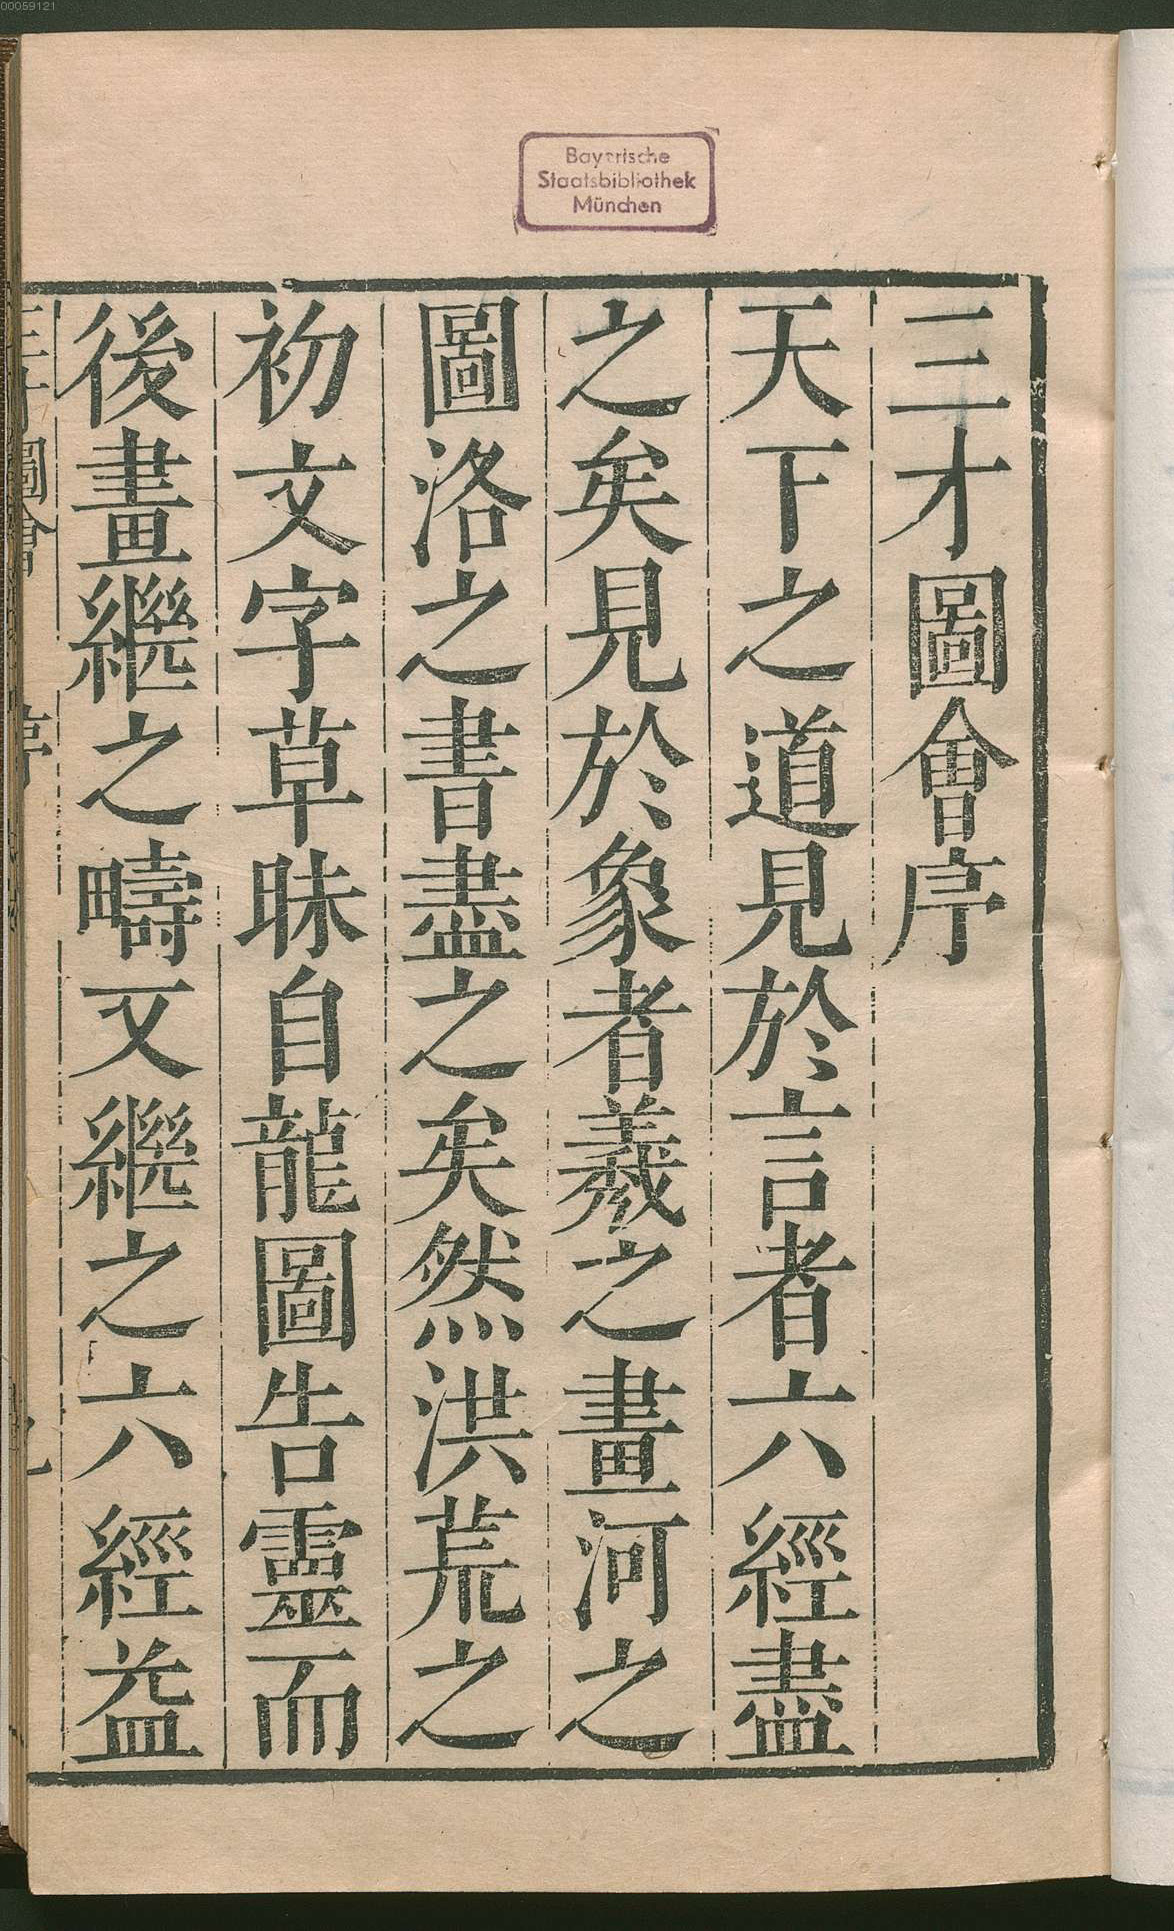 00059121
Bayerische
Staatsbibliothek
München
三才圖會序
天下之道見於言者六經盡
之矣見於象者羲之畫河之
圖洛之書盡之矣然洪荒之
初文字草昧自龍圖告靈而
後畫繼之疇又繼之六經益
三才圖會 序